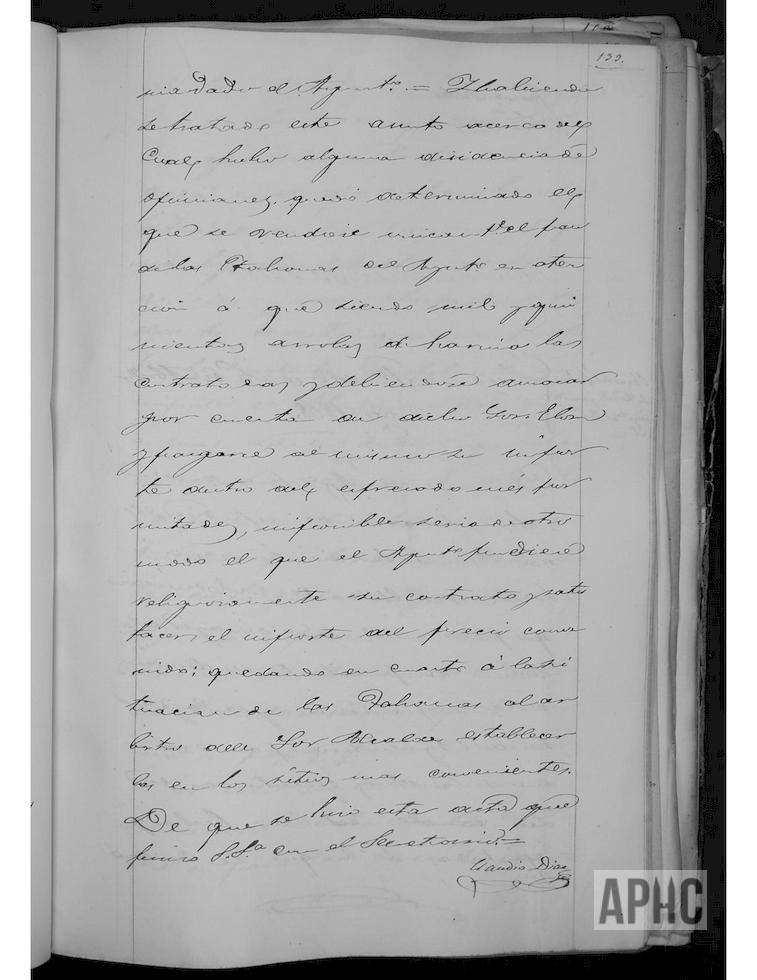 133.
dado el Ayunt.º = Y habiendo
se tratado este asunto acerca del
cual hubo alguna disidencia de
opiniones, quedó determinado el
que se vendiese unicam.te el pan
de las Tahonas del Ayunt.º en aten
cion á que siendo mil y quini
nientas arrobas de harina las
contratadas y debiendose amasar
por cuenta de dicho Sor.
y pagarse al mismo su impor
te dentro del espresado més por
mitades, imposible seria de otro
modo el que el Ayunt.º pudiese
religiosamente su contrato y satis
facer el importe del precio conve
nido; quedando en cuanto á la si
tuacion de las Tahonas al ar
bitrio del Sor Alcalde establecer
las en los sitios mas convenientes.
De que se hizo esta acta que
firmó S.Sª con el Secretario. =
Claudio Diaz
APHC